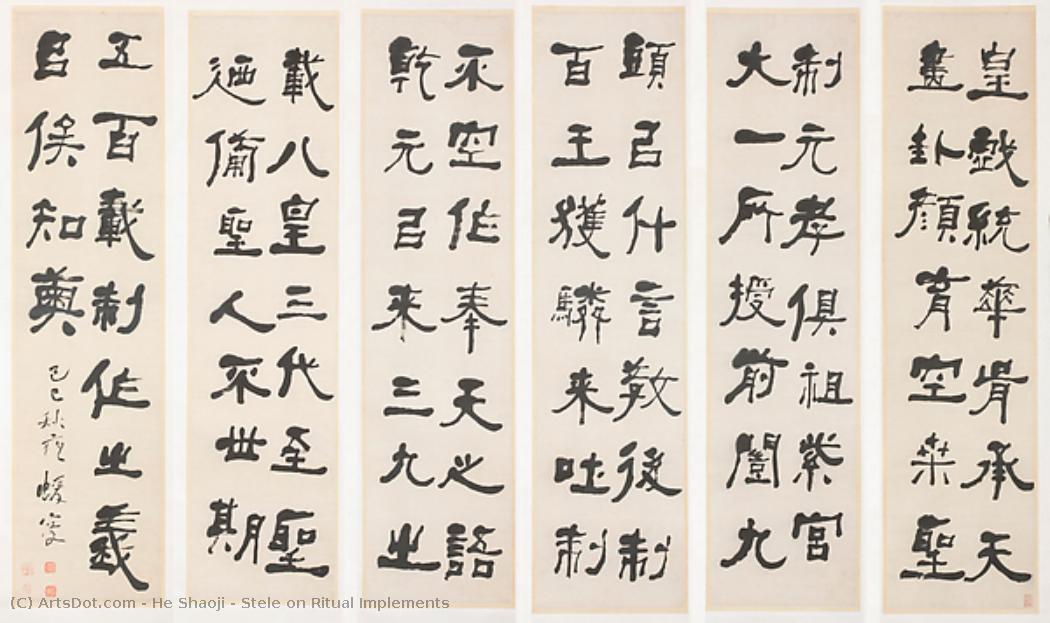 皇戲統華胥承天
畫卦顏育空桑聖
制元孝俱祖紫宮
大一所授前闓九
頭㠯什言教後制
百王獲驎来吐制
不空作奉天之語
乾元㠯来三九之
載八皇三代至聖
廼備聖人不世期
五百載制作之義
㠯俟知奧
己巳秋 蝯叟
(C) ArtsDot.com - He Shaoji - Stele on Ritual Implements